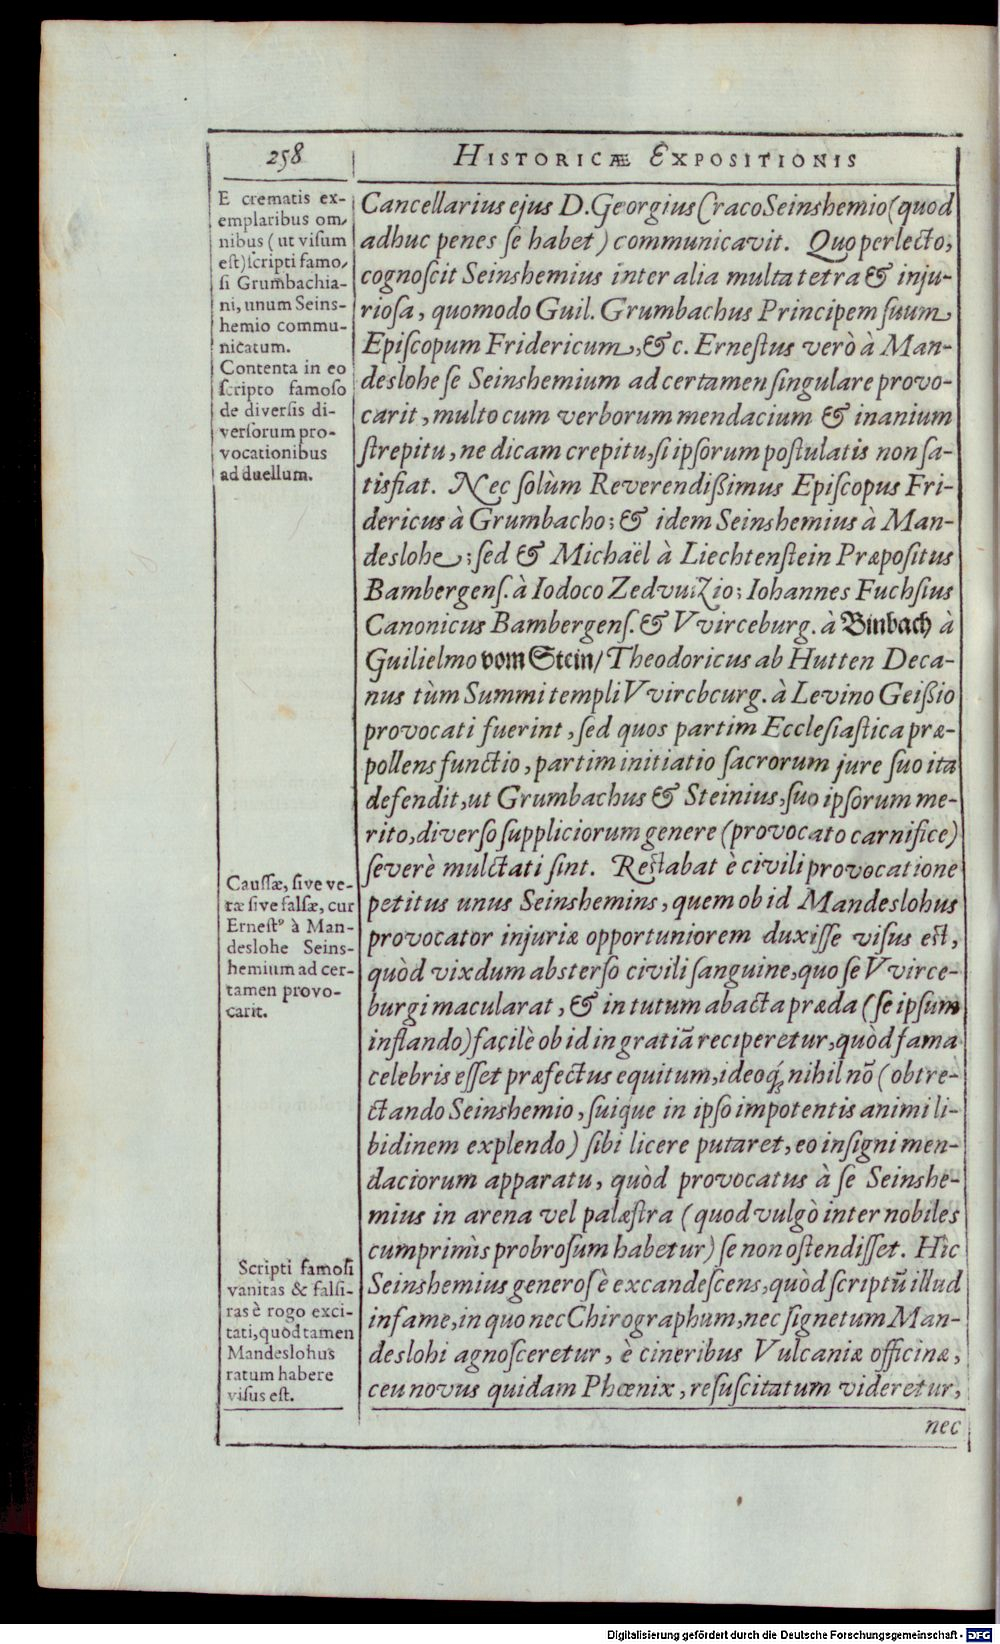 258
HISTORICÆ EXPOSITIONIS
E crematis ex-
emplaribus om-
nibus (ut visum
est) scripti famo-
si Grumbachia-
ni, unum Seins-
hemio commu-
nicatum.
Contenta in eo
scripto famoso
de diversis di-
versorum pro-
vocationibus
ad duellum.
Cancellarius ejus D. Georgius Craco Seinshemio (quod
adhuc penes se habet) communicavit. Quo perlecto,
cognoscit Seinshemius inter alia multa tetra & inju-
riosa, quomodo Guil. Grumbachus Principem suum
Episcopum Fridericum, &c. Ernestus verò à Man-
deslohe se Seinshemium ad certamen singulare provo-
carit, multo cum verborum mendacium & inanium
strepitu, ne dicam crepitu, si ipsorum postulatis non sa-
tisfiat. Nec solùm Reverendißimus Episcopus Fri-
dericus à Grumbacho; & idem Seinshemius à Man-
deslohe; sed & Michaël à Liechtenstein Præpositus
Bambergens. à Iodoco Zedvvizio; Iohannes Fuchsius
Canonicus Bambergens. & VVirceburg. à Binbach à
Guilielmo vom Stein/ Theodoricus ab Hutten Deca-
nus tùm Summi templi VVircbcurg. à Levino Geißio
provocati fuerint, sed quos partim Ecclesiastica præ-
pollens functio, partim initiatio sacrorum jure suo ita
defendit, ut Grumbachus & Steinius, suo ipsorum me-
rito, diverso suppliciorum genere (provocato carnifice)
severè mulctati sint. Restabat è civili provocatione
petitus unus Seinshemins, quem ob id Mandeslohus
provocator injuriæ opportuniorem duxisse visus est,
quòd vixdum absterso civili sanguine, quo se VVirce-
burgi macularat, & in tutum abacta præda (se ipsum
inflando) facilè ob id in gratiã reciperetur, quòd fama
celebris esset præfectus equitum, ideoq́; nihil nõ (obtre-
ctando Seinshemio, suique in ipso impotentis animi li-
bidinem explendo) sibi licere putaret, eo insigni men-
daciorum apparatu, quòd provocatus à se Seinshe-
mius in arena vel palæstra (quod vulgò inter nobiles
cumprimìs probrosum habetur) se non ostendisset. Hîc
Seinshemius generosè excandescens, quòd scriptũ illud
infame, in quo nec Chirographum, nec signetum Man-
deslohi agnosceretur, è cineribus Vulcaniæ officinæ,
ceu novus quidam Phœnix, resuscitatum videretur,
Caussæ, sive ve-
ræ sive falsæ, cur
Ernestꝰ à Man-
deslohe Seins-
hemium ad cer-
tamen provo-
carit.
Scripti famosi
vanitas & falsi-
ras è rogo exci-
tati, quod tamen
Mandeslohus
ratum habere
visus est.
nec
Digitalisierung gefördert durch die Deutsche Forschungsgemeinschaft - DFG